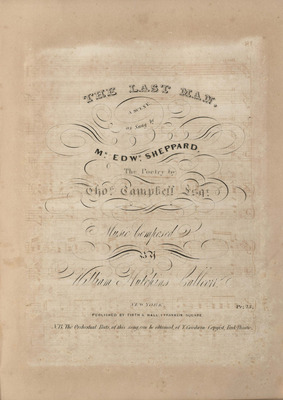 THE LAST MAN,
A SCENE
as Sung by
Mr. EDWd. SHEPPARD,
The Poetry by
Thos. Campbell Esqr.
Music Composed
BY
William Hutchins Callcott
NEW YORK,
PUBLISHED BY FIRTH & HALL 1 FRANKLIN SQUARE.
Pr.
N.B. The Orchestral Parts of this song can be obtained of T. Goodwin Copyist, Park Theatre.